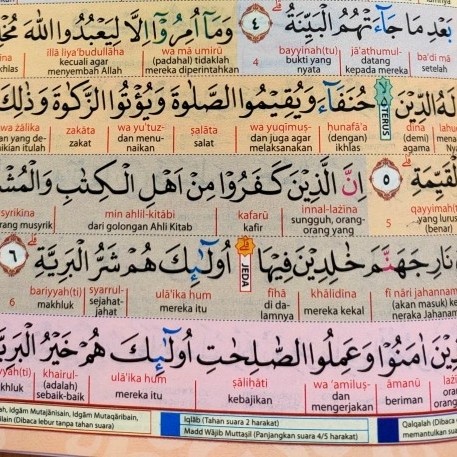 بَعْدِ مَا جَآءَتْهُمُ الْبَيِّنَةُ ٤ وَمَآ اُمِرُوْٓا اِلَّا لِيَعْبُدُوا اللّٰهَ
ba'di mā jā'athumul- bayyinah(tu) 4 wa mā umirū illā liya'budullāha
setelah datang kepada mereka bukti yang nyata (padahal) tidaklah mereka diperintahkan kecuali agar menyembah Allah
لَهُ الدِّيْنَ TERUS حُنَفَآءَ وَيُقِيْمُوا الصَّلٰوةَ وَيُؤْتُوا الزَّكٰوةَ وَذٰلِكَ
dīna ḥunafā'a wa yuqīmuṣ- ṣalāta wa yu'tuz- zakāta wa żālika
(dalam) agama (dengan) ikhlas dan juga agar melaksanakan salat dan menunaikan zakat
الْقَيِّمَةِ ٥ اِنَّ الَّذِيْنَ كَفَرُوْا مِنْ اَهْلِ الْكِتٰبِ
qayyimah(ti) 5 innal-lażīna kafarū min ahlil-kitābi
yang lurus (benar) sungguh, orang-orang yang kafir dari golongan Ahli Kitab
نَارِ جَهَنَّمَ خٰلِدِيْنَ فِيْهَا JEDA اُولٰٓئِكَ هُمْ شَرُّ الْبَرِيَّةِ ٦
fī nāri jahannama khālidīna fīhā ulā'ika hum syarrul- bariyyah(ti) 6
(akan masuk) ke neraka Jahanam mereka kekal di dalamnya mereka itu sejahat-jahat makhluk
اٰمَنُوْا وَعَمِلُوا الصّٰلِحٰتِ اُولٰٓئِكَ هُمْ خَيْرُ
āmanū wa 'amiluṣ- ṣāliḥāti ulā'ika hum khairul-
beriman dan mengerjakan kebajikan mereka itu (adalah) sebaik-baik
Idgām Mutajānisain, Idgām Mutaqāribain, (Dibaca lebur tanpa tahan suara)
Iqlāb (Tahan suara 2 harakat)
Madd Wājib Muttaṣil (Panjangkan suara 4/5 harakat)
Qalqalah (Dibaca